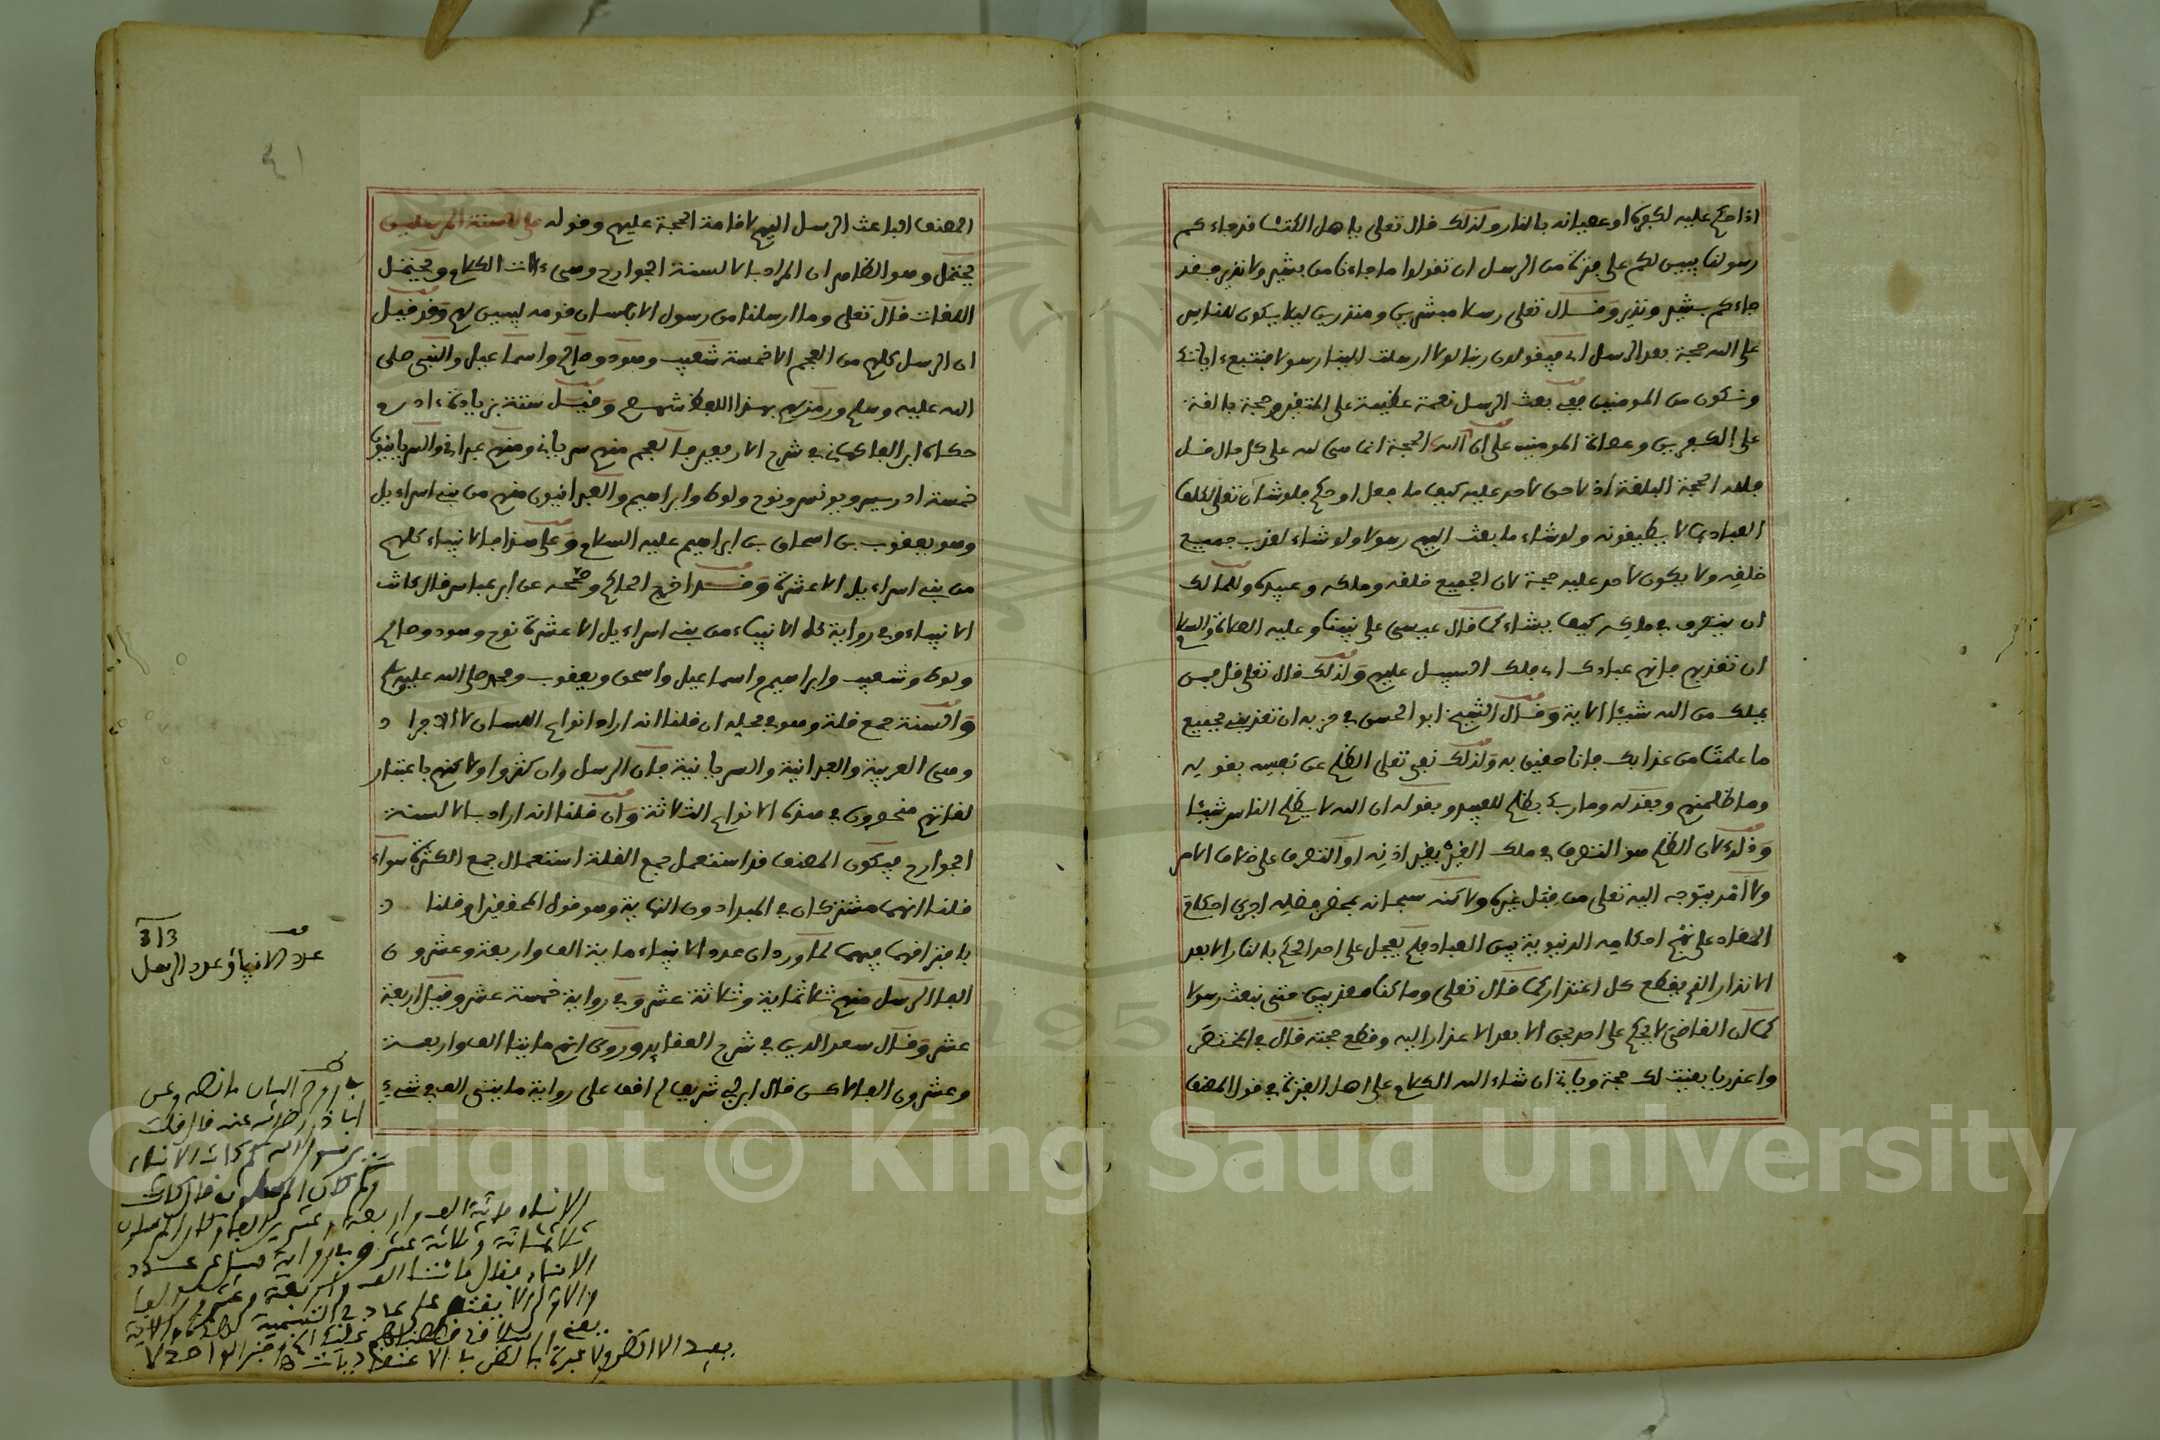 اذا حكم عليه لكفره او عصيانه بالنار ولذلك قال تعلى ياهل الكتب قد جاءكم
رسولنا يبين لكم على فترة من الرسل ان تقولوا ما جاءنا من بشير ولا نذير فقد
جاءكم بشير ونذير وقال تعلى رسلا مبشرين ومنذرين ليلا يكون للناس
على الله حجة بعد الرسل اي فيقولون ربنا لولا ارسلت الينا رسولا فنتبع ءاياتك
ونكون من المومنين ففي بعث الرسل نعمة عظيمة على المتقين وحجة بالغة
على الكفرين وعصاة المومنين على ان الحجة انما هي لله على كل حال قل
فلله الحجة البلغة اذ لا حق لاحد عليه كيف ما فعل او حكم فلو شاء تعلى لكلف
العباد بما لا يطيقونه ولو شاء ما بعث اليهم رسولا ولو شاء لعذب جميع
خلقه ولا يكون لاحد عليه حجة لان الجميع خلقه وملكه وعبيده وللمالك
ان يتصرف في ملكه كيف يشاء كما قال عيسى على نبينا وعليه الصلاة والسلام
ان تعذبهم فانهم عبادك اي فلك السبيل عليهم ولذلك قال تعلى قل فمن
يملك من الله شيئا الاية وقال الشيخ ابو الحسن في حزبه ان تعذبني بجميع
ما علمت من عذابك فانا حقيق به ولذلك نفى تعلى الظلم عن نفسه بقوله
وما ظلمنهم وبقوله وما ربك بظلم للعبيد وبقوله ان الله لا يظلم الناس شيئا
وذلك لان الظلم هو التصرف في ملك الغير بغير اذنه او التصرف على خلاف الامر
ولا امر يتوجه اليه تعلى من قبل غيره ولاكنه سبحانه بمحض فضله اجرى احكام
المعاد على نهج احكامه الدنيوية بين العباد فلم يعجل على احد الحكم بالنار الا بعد
الانذار الذي يقطع كل اعتذار كما قال تعلى وما كنا معذبين حتى نبعث رسولا
كما ان القاضي لا يحكم على احد بحق الا بعد الاعذار اليه وقطع حجته قال في المختصر
واعذر بابقيت لك حجة وياتي ان شاء الله الكلام على اهل الفترة في قول المصنف
٤١
المصنف الباعث الرسل اليهم لاقامة الحجة عليهم وقوله على السنة المرسلين
يحتمل وهو الظاهر ان المراد بالالسنة الجوارح وهي ءالات الكلام ويحتمل
اللغات قال تعلى وما ارسلنا من رسول الا بلسان قومه ليبين لهم وقد قيل
ان الرسل كلهم من العجم الا خمسة شعيب وهود وصالح واسماعيل والنبي صلى
الله عليه وسلم ورمزهم بهذا اللفظ شهصم وقيل ستة بزيادة ءادم
حكاه ابن الفاكهاني في شرح الاربعين فالعجم منهم سرياني ومنهم عبراني والسريانيون
خمسة ادريس ويونس ونوح ولوط وابراهيم والعبرانيون منهم من بني اسراءيل
وهو يعقوب بن اسحاق بن ابراهيم عليه السلام وعلى هذا فالانبياء كلهم
من بني اسراءيل الا عشرة وقد اخرج الحاكم وصححه عن ابن عباس قال كانت
الانبياء وفي رواية كل الانبياء من بني اسراءيل الا عشرة نوح وهود وصالح
ولوط وشعيب وابراهيم واسماعيل واسحق ويعقوب ومحمد صلى الله عليهم
والسنة جمع قلة وهو في محله ان قلنا انه اراد انواع اللسان لا الافراد
وهي العربية والعبرانية والسريانية فان الرسل وان كثروا ولاكنهم باعتبار
لغاتهم منحصرون في هذه الانواع الثلاثة وان قلنا انه اراد بالالسنة
الجوارح فيكون المصنف قد استعمل جمع القلة استعمال جمع الكثرة سواء
قلنا انهما مشتركان في المبدا دون النهاية وهو قول المحققين او قلنا
بافتراقهما فيهما لما ورد ان عدد الانبياء ماية الف واربعة وعشرون
الفا الرسل منهم ثلاثماية وثلاثة عشر وفي رواية خمسة عشر وقيل اربعة
عشر وقال سعد الدين في شرح العقايد وروي انهم مايتا الف واربعة
وعشرون الفا لاكن قال ابن ابي شريف لم اقف على رواية مايتي الف في شيء
313
عدد الانبياء وعدد الرسل
روح البيان ما نصه وعن
ابا ذر رضي الله عنه قال قلت
يرسول الله كم كانت الانبياء
وكم كان المرسلون قال كانت
الانبياء مائة الف واربعة وعشرين الفا وكان المرسلون
ثلاثمائة وثلاثة عشر وفي رواية سئل عن عدد
الانبياء فقال مائتا الف واربعة وعشرون الفا
والاولى ان لا يقتصر على عدد في التسمية